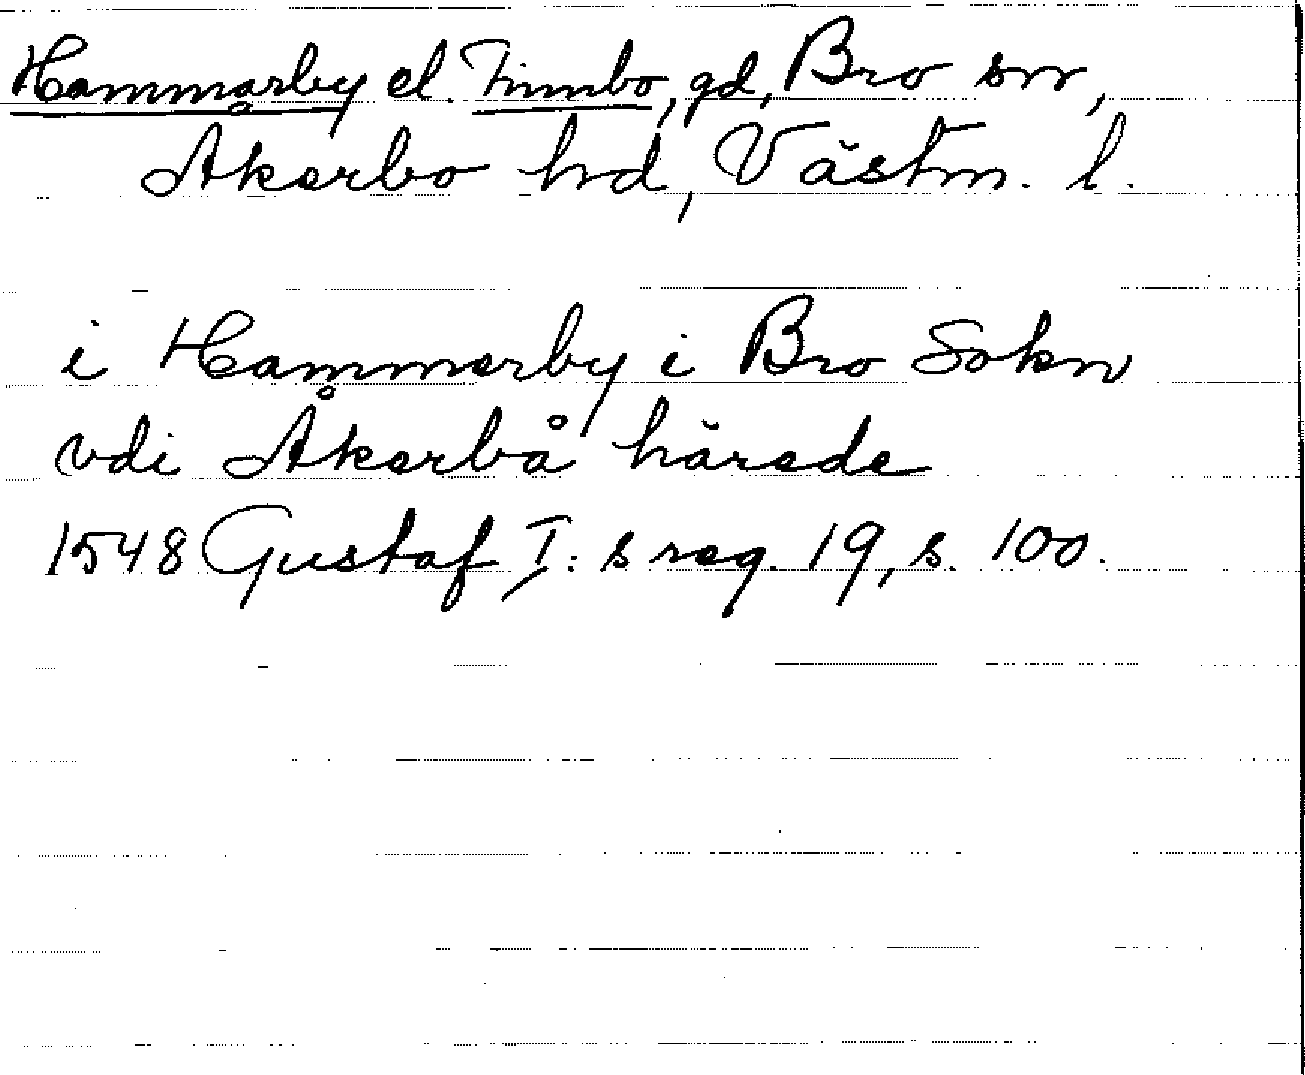 Hammarby el. Finnbo, gd, Bro sn,
Åkerbo hd, Västm. l.
i Hammerby i Bro Sokn
vdi Åkerbå härede
1548 Gustaf I: s reg. 19, s. 100.